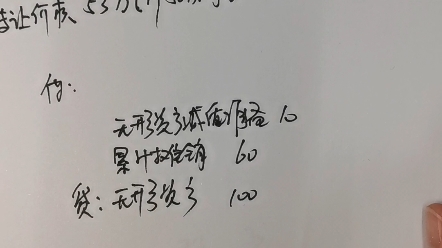 转让价款53万
借:
无形资产减值准备 10
累计摊销 60
贷:无形资产 100